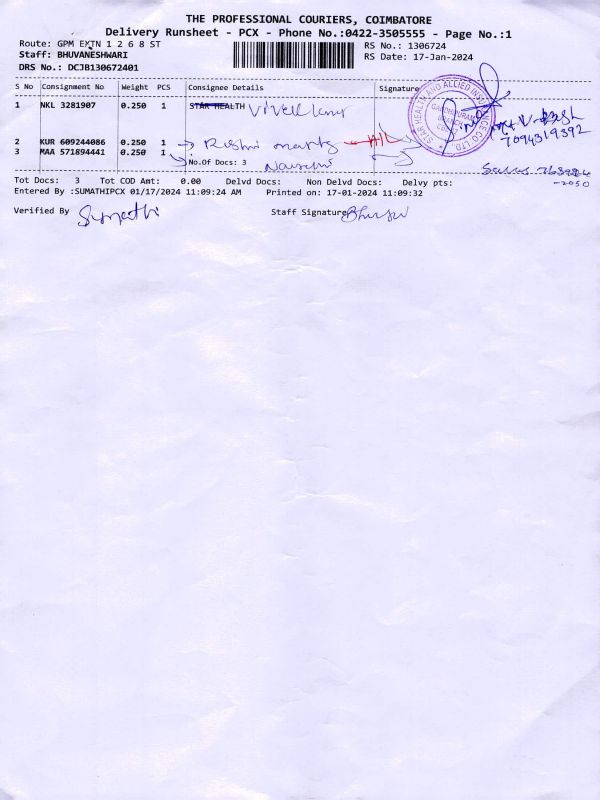 THE PROFESSIONAL COURIERS, COIMBATORE
Delivery Runsheet - PCX - Phone No.:0422-3505555 - Page No.:1
Route: GPM EXTN 1 2 6 8 ST RS No.: 1306724
Staff: BHUVANESHWARI RS Date: 17-Jan-2024
DRS No.: DCJB130672401
S No Consignment No Weight PCS Consignee Details Signature
1 NKL 3281907 0.250 1 STAR HEALTH
STAR HEALTH AND ALLIED INSURANCE CO LTD
7094319392
2 KUR 609244086 0.250 1
3 MAA 571894441 0.250 1
No.Of Docs: 3
Tot Docs: 3 Tot COD Amt: 0.00 Delvd Docs: Non Delvd Docs: Delvy pts:
Entered By :SUMATHIPCX 01/17/2024 11:09:24 AM Printed on: 17-01-2024 11:09:32
Verified By Sumathi Staff Signature